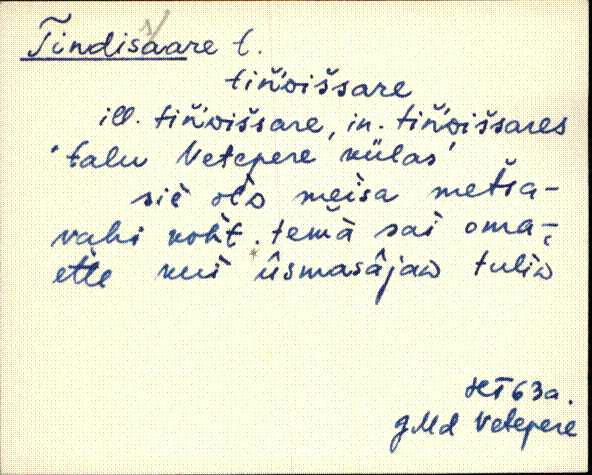 Tindisaare t.
tińᴅišsare
ill. tiń'ᴅišsare, in. tiń'ᴅišsares
'talu Vetepere külas'
siè̀ oĺə meìsa metsa-
vahi koht. temä sai oma-
ette kui ûsmasâjaᴅ tuliᴅ
HT 63a.
JMd Vetepere